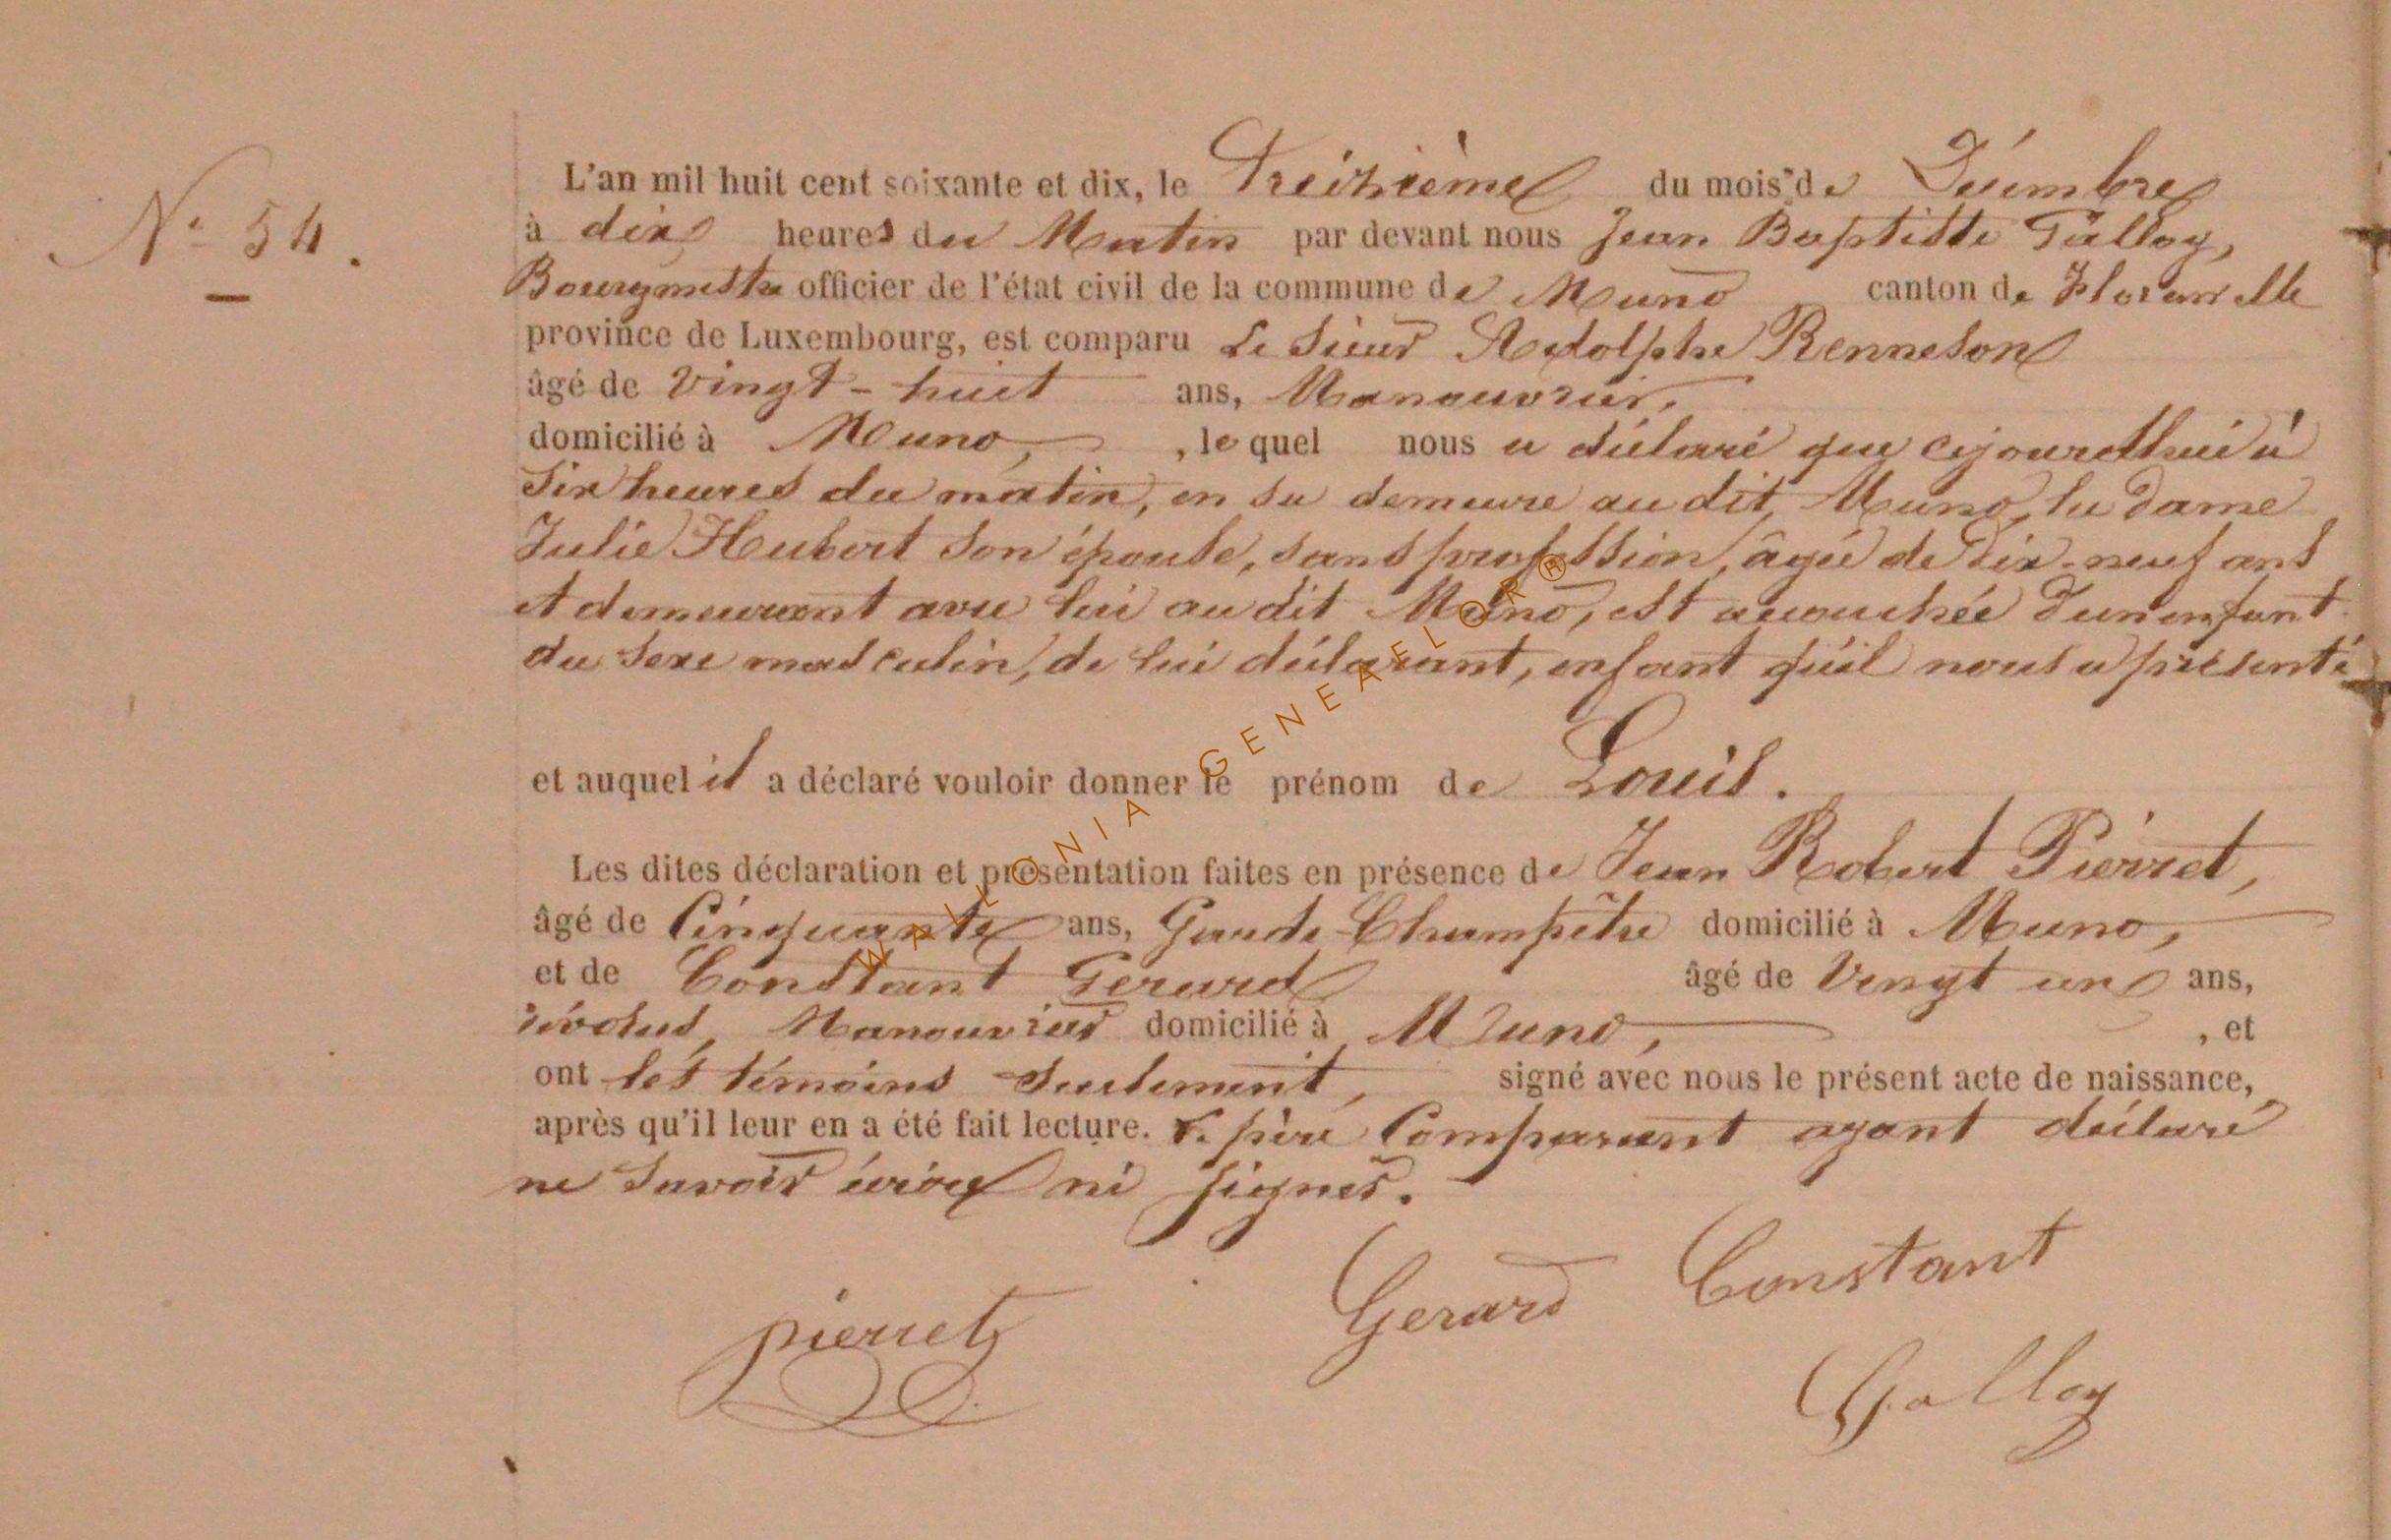 N° 54.
L'an mil huit cent soixante et dix, le Treizième du mois de Décembre
à dix heures du Matin par devant nous Jean Baptiste Talloy,
Bourgmestre officier de l'état civil de la commune de Muno canton de Florenville
province de Luxembourg, est comparu Le Sieur Adolphe Renneson
âgé de Vingt-huit ans, Manouvrier,
domicilié à Muno, , lequel nous a déclaré que cejourdhui à
Six heures du matin, en sa demeure au dit Muno, la Dame
Julie Hubert son épouse, sans profession, âgée de Dix-neuf ans
et demeurant avec lui au dit Muno, est accouchée D'un enfant
du sexe masculin, de lui déclarant, enfant qu'il nous a présenté
et auquel il a déclaré vouloir donner le prénom de Louis.
Les dites déclaration et présentation faites en présence de Jean Robert Pierret,
âgé de Cinquante ans, Garde-Champêtre domicilié à Muno,
et de Constant Gerard âgé de Vingt un ans,
révolus, Manouvrier domicilié à Muno, , et
ont les témoins seulement, signé avec nous le présent acte de naissance,
après qu'il leur en a été fait lecture. Le père Comparant ayant déclaré
ne savoir écrire ni signer.
pierret
Gerard Constant
Talloy
WALLONIA GENEAFLOR®